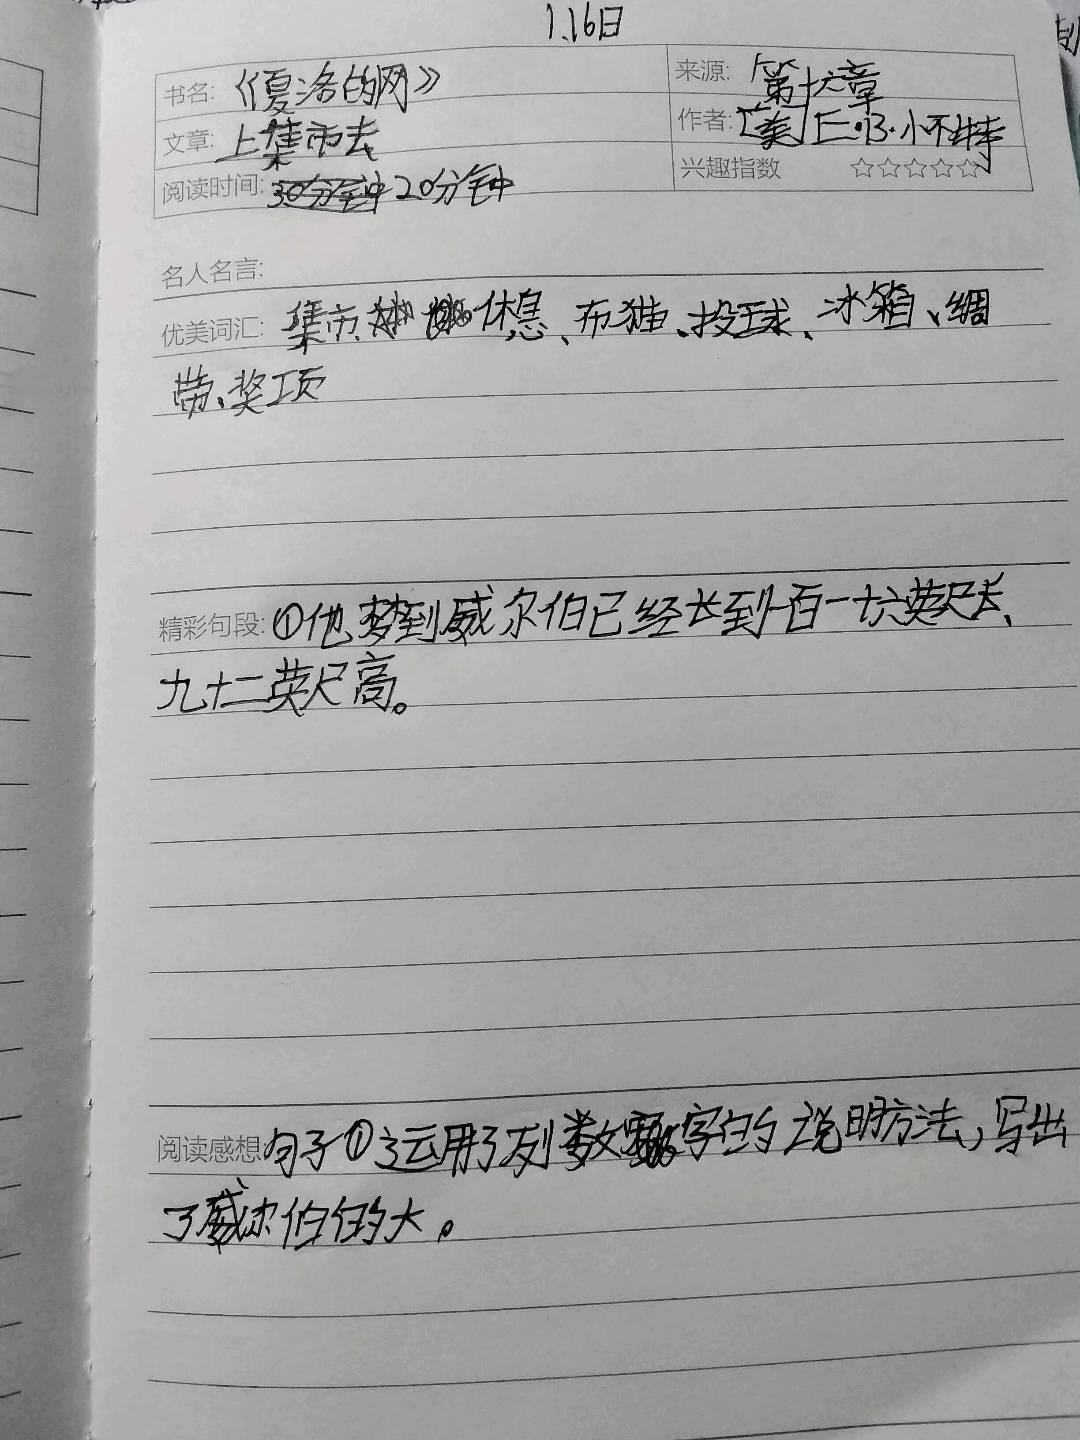 1.16日
书名:《夏洛的网》 来源:「第十六章
文章:上集市去 作者:[美]E·B·小不特
阅读时间:30分钟 20分钟 兴趣指数 ☆☆☆☆☆
名人名言:
优美词汇: 集市、休息、布猫、投球、冰箱、绸
带、奖项
精彩句段:①他梦到威尔伯已经长到一百一十六英尺长、
九十二英尺高。
阅读感想:句子①运用了列数字的说明方法,写出
了威尔伯的大。